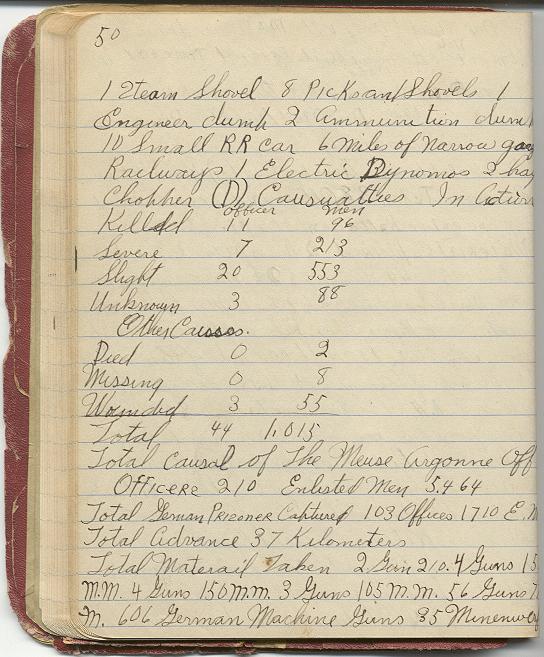 50
1 Steam Shovel 8 Picks and Shovels 1
Engineer dump 2 Ammunition dum
10 Small RR car 6 Miles of Narrow gag
Raclways 1 Electric Dynomos 2 hay
Chopper (D) Causualties In Action
officer men
Killed 11 96
Severe 7 213
Slight 20 553
Unknown 3 88
Other Causes.
Died 0 2
Missing 0 8
Wounded 3 55
Total 44 1,015
Total Causal of The Meuse Argonne Off
Officere 210 Enlisted Men 5,464
Total German Prisoner Captured 103 Offices 1710 E.M
Total Advance 37 Kilometers
Total Materail Taken 2 Gun 210. 4 Guns 15
M.M. 4 Guns 150 M.m. 3 Guns 105 M.M. 56 Guns 7
M. 606 German Machine Guns 85 Minenwerf